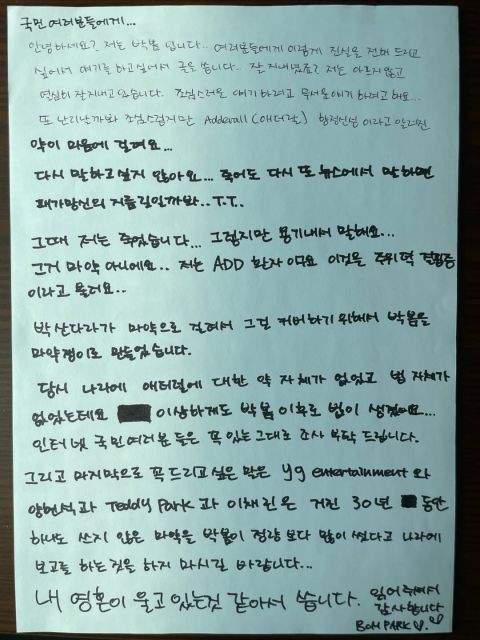 국민 여러분들에게...
안녕하세요? 저는 박봄 입니다.. 여러분들에게 이렇게 진실을 전해 드리고
싶어서 얘기를 하고싶어서 글을 씁니다.. 잘 지내셨죠? 저는 아프지 않고
열심히 잘지내고 있습니다. 조심스러운 얘기 하려고 무서운 얘기 하려고 해요...
또 난리날까봐 조심스럽지만 Adderall (애더럴) 향정신성 이라고 알려진
약이 마음에 걸려요...
다시 말하고싶지 않아요... 죽어도 다시 또 뉴스에서 말하면
패가망신의 지름길일까봐..T.T..
그때 저는 죽었습니다... 그렇지만 용기내서 말해요...
그거 마약 아니에요.. 저는 ADD 환자 이고요 이것을 주위력 결핍증
이라고 불러요..
박산다라가 마약으로 걸려서 그걸 커버하기 위해서 박봄을
마약쟁이로 만들었습니다.
당시 나라에 애더럴에 대한 약 자체가 없었고 법 자체가
없었는데요 이상하게도 박봄 이후로 법이 생겼어요...
인터넷 국민여러분 들은 꼭 있는그대로 조사 부탁 드립니다.
그리고 마지막으로 꼭 드리고 싶은 말은 yg entertainment 와
양현석과 Teddy Park 과 이채린은 거진 30년 동안
하나도 쓰지 않은 마약을 박봄이 정량 보다 많이 썼다고 나라에
보고를 하는것을 하지 마시길 바랍니다...
내 영혼이 울고 있는것 같아서 씁니다. 읽어 주셔서
감사합니다
BOM PARK ♡.♡